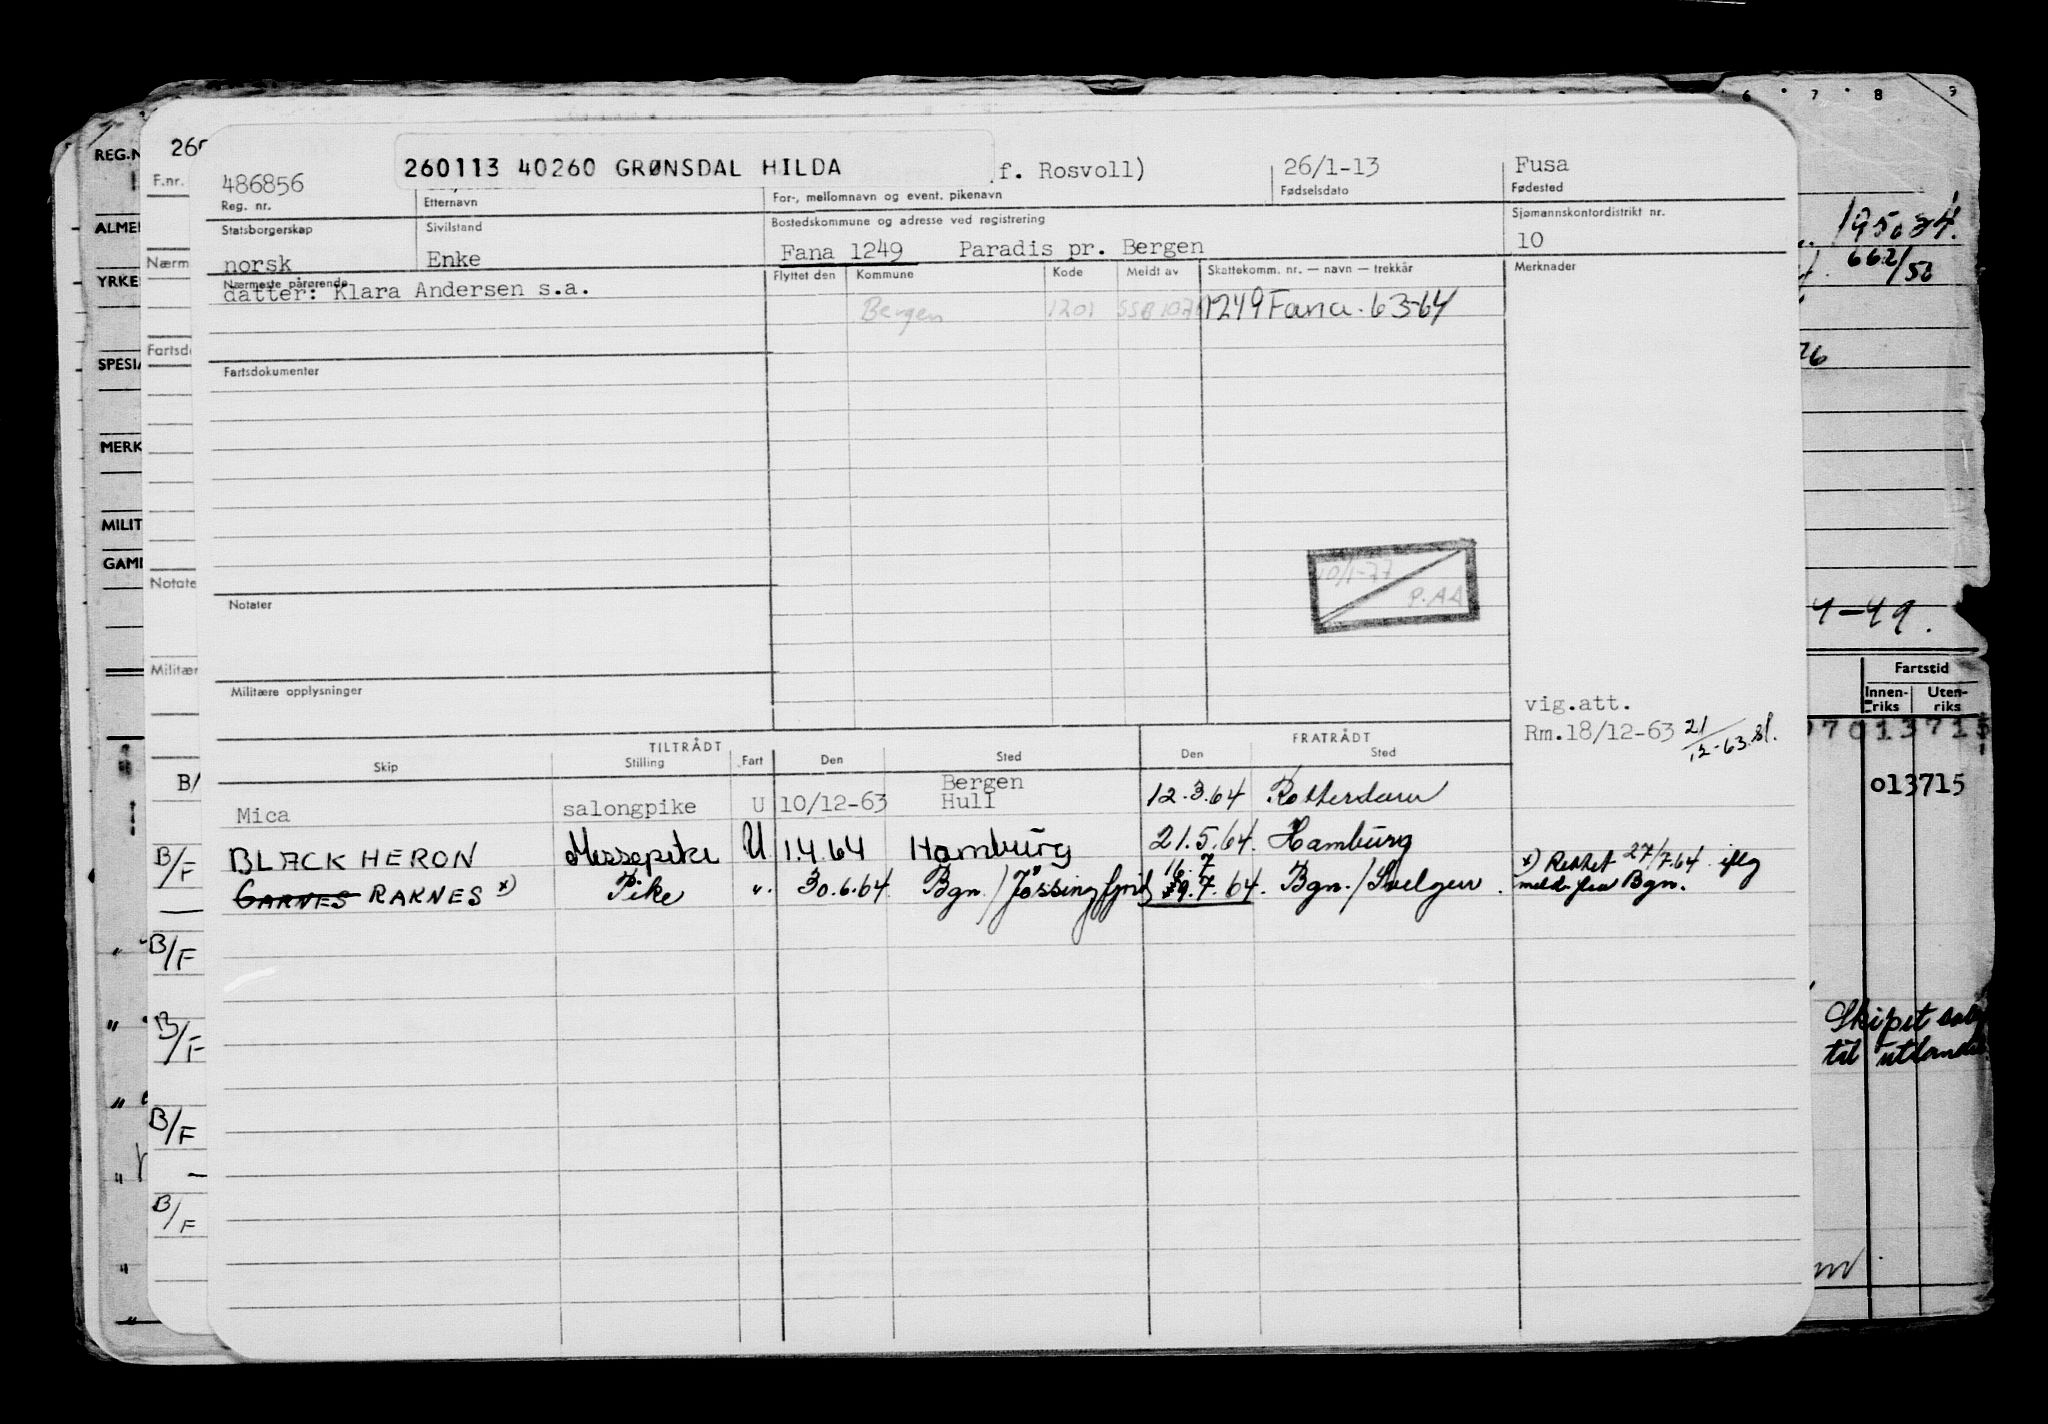 6 7 8 9
REG.N
260
260113 40260 GRØNSDAL HILDA f. Rosvoll) 26/1-13 Fusa
F.nr. 486856
Reg. nr. Etternavn For-, mellomnavn og event. pikenavn Fødselsdato Fødested
Statsborgerskap Sivilstand Bostedskommune og adresse ved registrering Sjømannskontordistrikt nr.
norsk Enke Fana 1249 Paradis pr. Bergen 10
Nærmeste pårørende Flyttet den Kommune Kode Meldt av Skattekomm. nr. — navn — trekkår Merknader
datter: Klara Andersen s.a.
Bergen 1201 1249 Fana. 63-64
Fartsdokumenter
10/1-77
P.AA
Notater
Militære opplysninger
vig.att.
Rm.18/12-63 21/12-63
TILTRÅDT FRATRÅDT
Skip Stilling Fart Den Sted Den Sted
Bergen
Mica salongpike U 10/12-63 Hull 12.3.64 Rotterdam
BLACK HERON Messepike U 1.4.64 Hamburg 21.5.64. Hamburg
GARNES RAKNES x) Pike ". 30.6.64 Bgn./Jøssingfjord 16.7 29.7.64. Bgn./Svelgen.
x) Rettet 27/7.64 iflg
meld. fra Bgn.
ALMEI
Nærm
YRKE
Fartsd
SPESIA
MERK
MILIT
GAMI
Notate
Militær
B/
B/F
B/F
B/F
B/F
B/F
195034.
662/50
26
4-49.
Fartstid
Innenriks Utenriks
013715
013715
Skipet
til